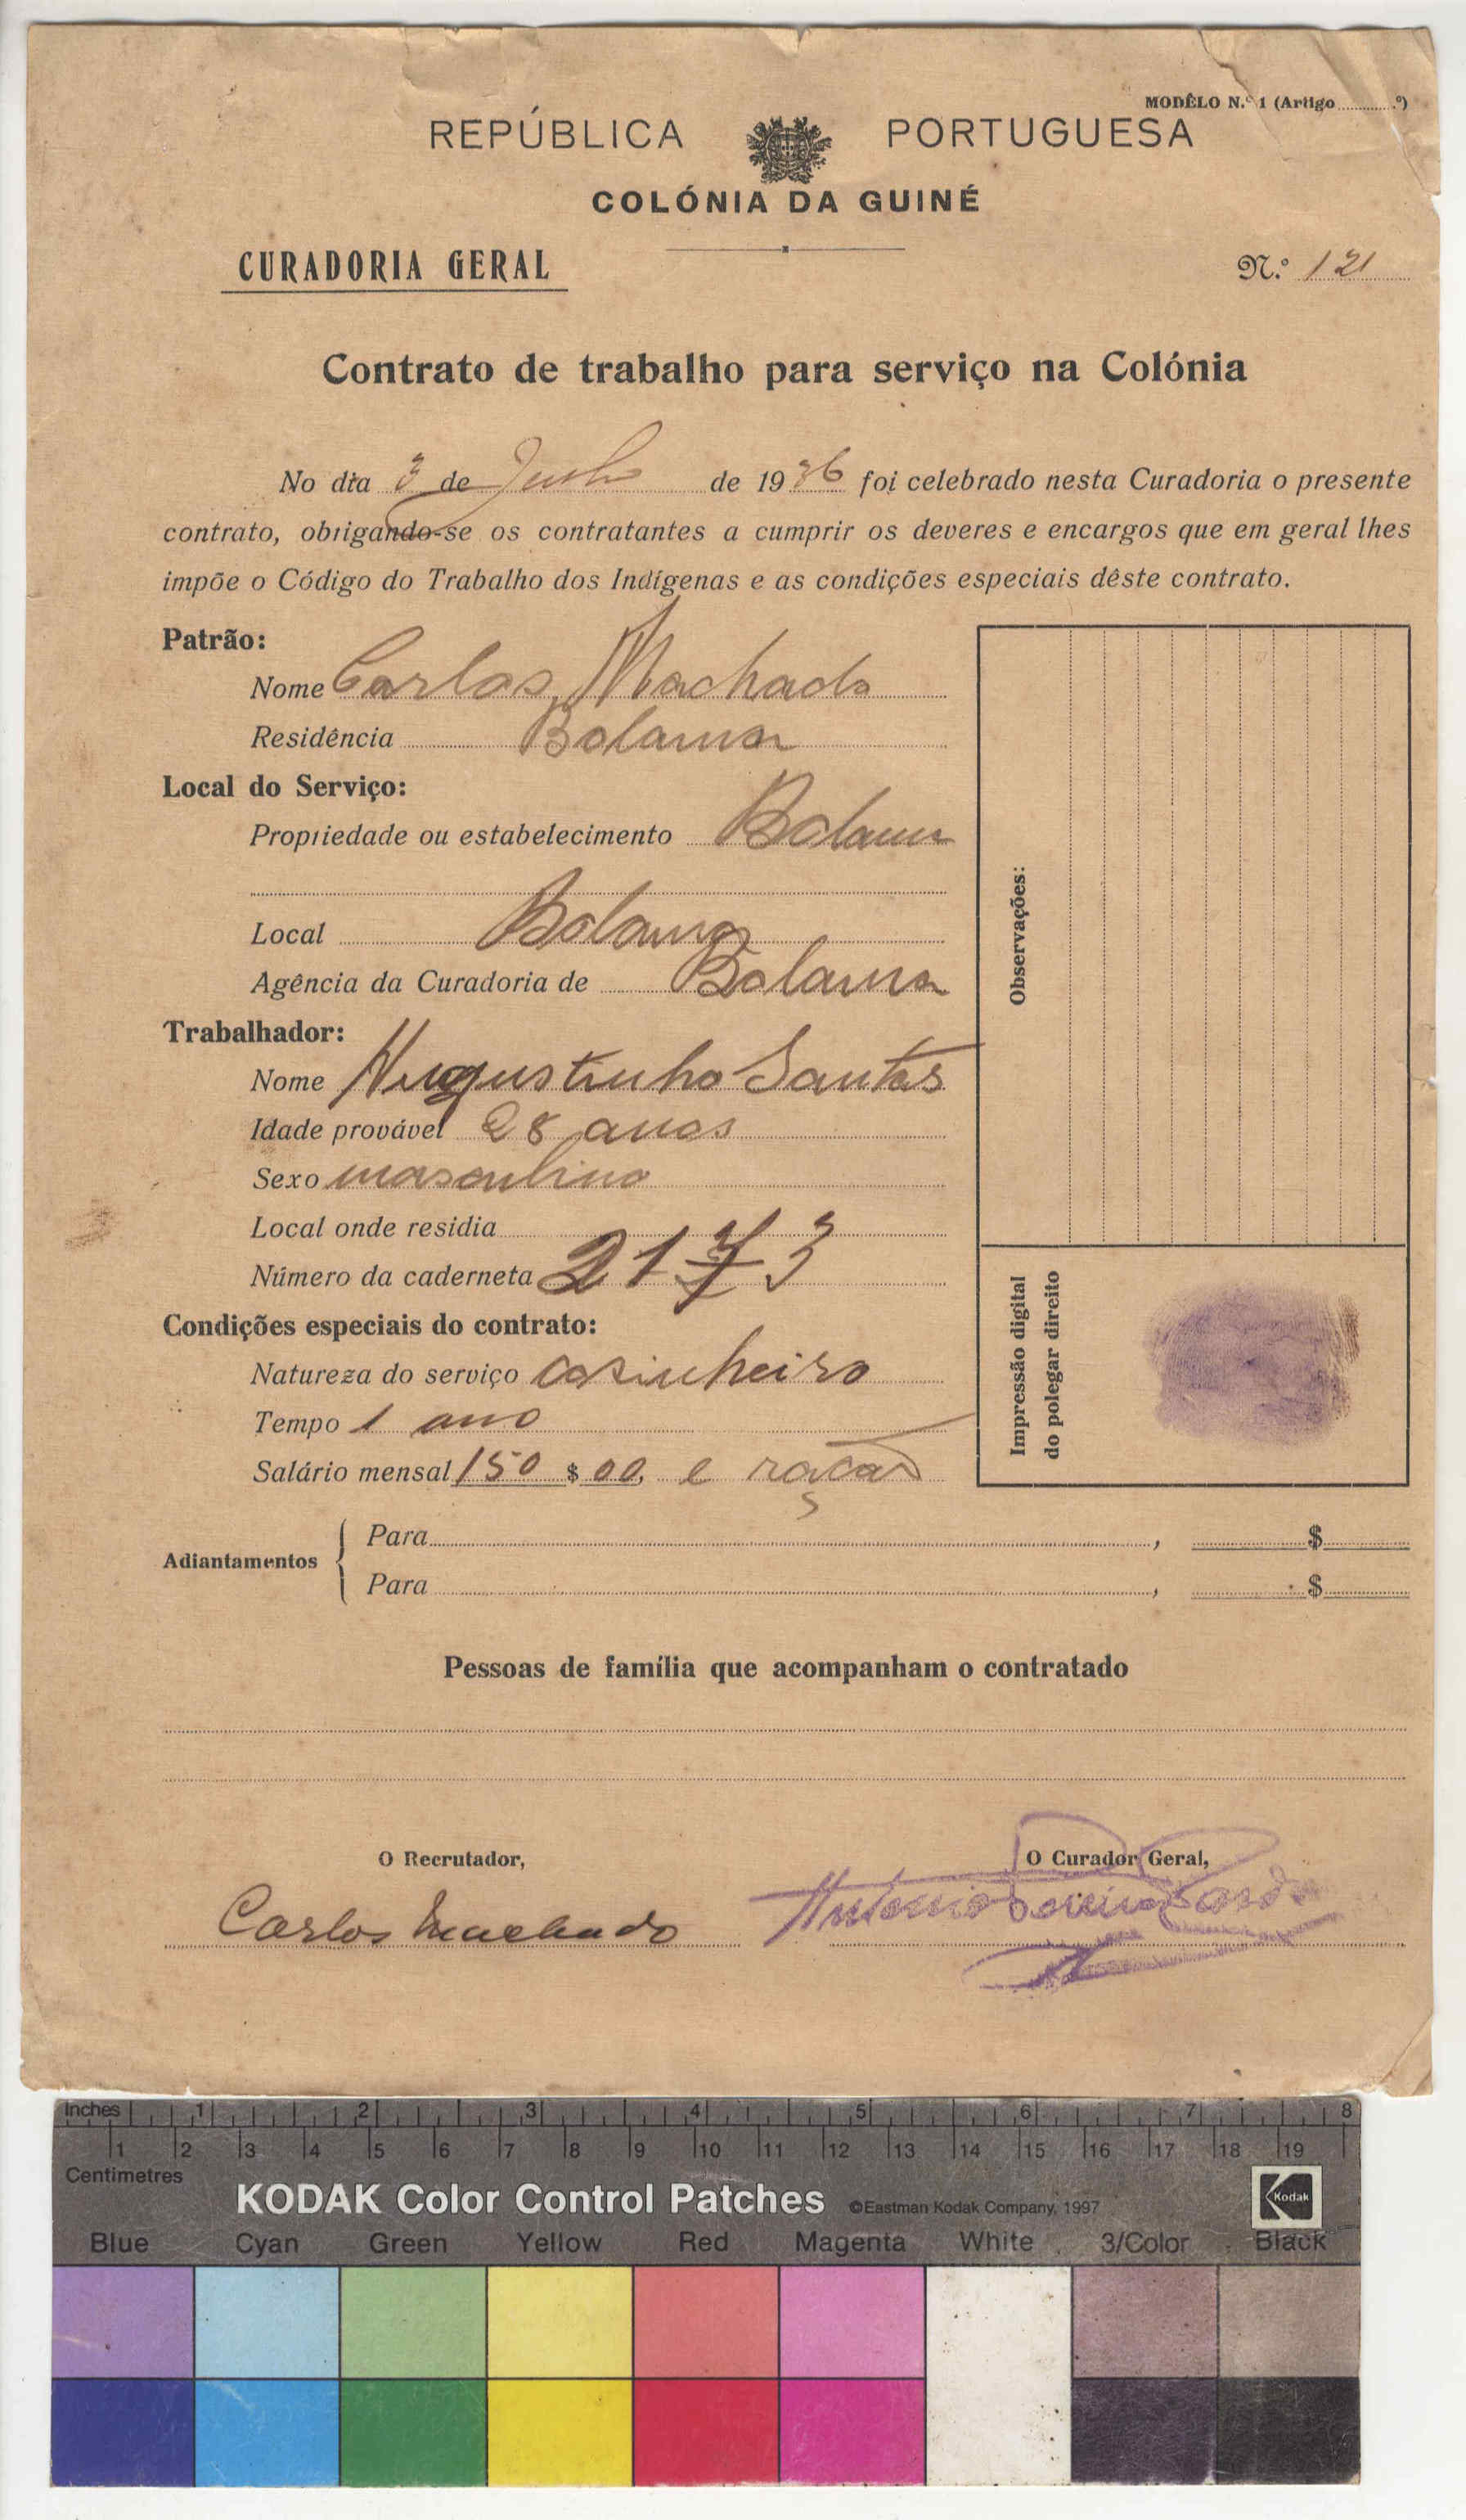 MODÊLO N.º 1 (Artigo ............º)
REPÚBLICA PORTUGUESA
COLÓNIA DA GUINÉ
CURADORIA GERAL
N.º 121
Contrato de trabalho para serviço na Colónia
No dia 3 de de 1936 foi celebrado nesta Curadoria o presente
contrato, obrigando-se os contratantes a cumprir os deveres e encargos que em geral lhes
impõe o Código do Trabalho dos Indígenas e as condições especiais dêste contrato.
Patrão:
Nome Carlos Machado
Residência Bolama
Local do Serviço:
Propriedade ou estabelecimento Bolama
Local Bolama
Agência da Curadoria de Bolama
Trabalhador:
Nome Augustinho Santos
Idade provável 28 anos
Sexo masculino
Local onde residia
Número da caderneta 2173
Condições especiais do contrato:
Natureza do serviço cosinheiro
Tempo 1 ano
Salário mensal 150 $ 00, e ração
Observações:
Impressão digital
do polegar direito
Adiantamentos
Para , $
Para , $
Pessoas de família que acompanham o contratado
O Recrutador,
Carlos Machado
O Curador Geral,
Antonio Pereira Cardoso
Inches 1 2 3 4 5 6 7 8
1 2 3 4 5 6 7 8 9 10 11 12 13 14 15 16 17 18 19
Centimetres
KODAK Color Control Patches ©Eastman Kodak Company, 1997 Kodak
Blue Cyan Green Yellow Red Magenta White 3/Color Black